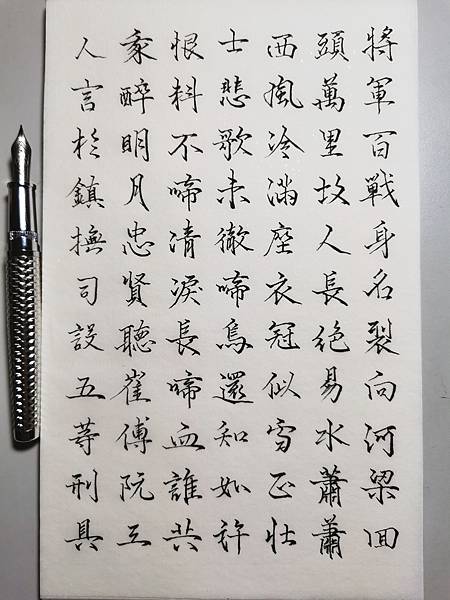 將軍百戰身名裂向河梁回
頭萬里故人長絕易水蕭蕭
西風冷滿座衣冠似雪正壯
士悲歌未徹啼鳥還知如許
恨料不啼清淚長啼血誰共
我醉明月忠賢聽崔傅阮三
人言於鎮撫司設五等刑具